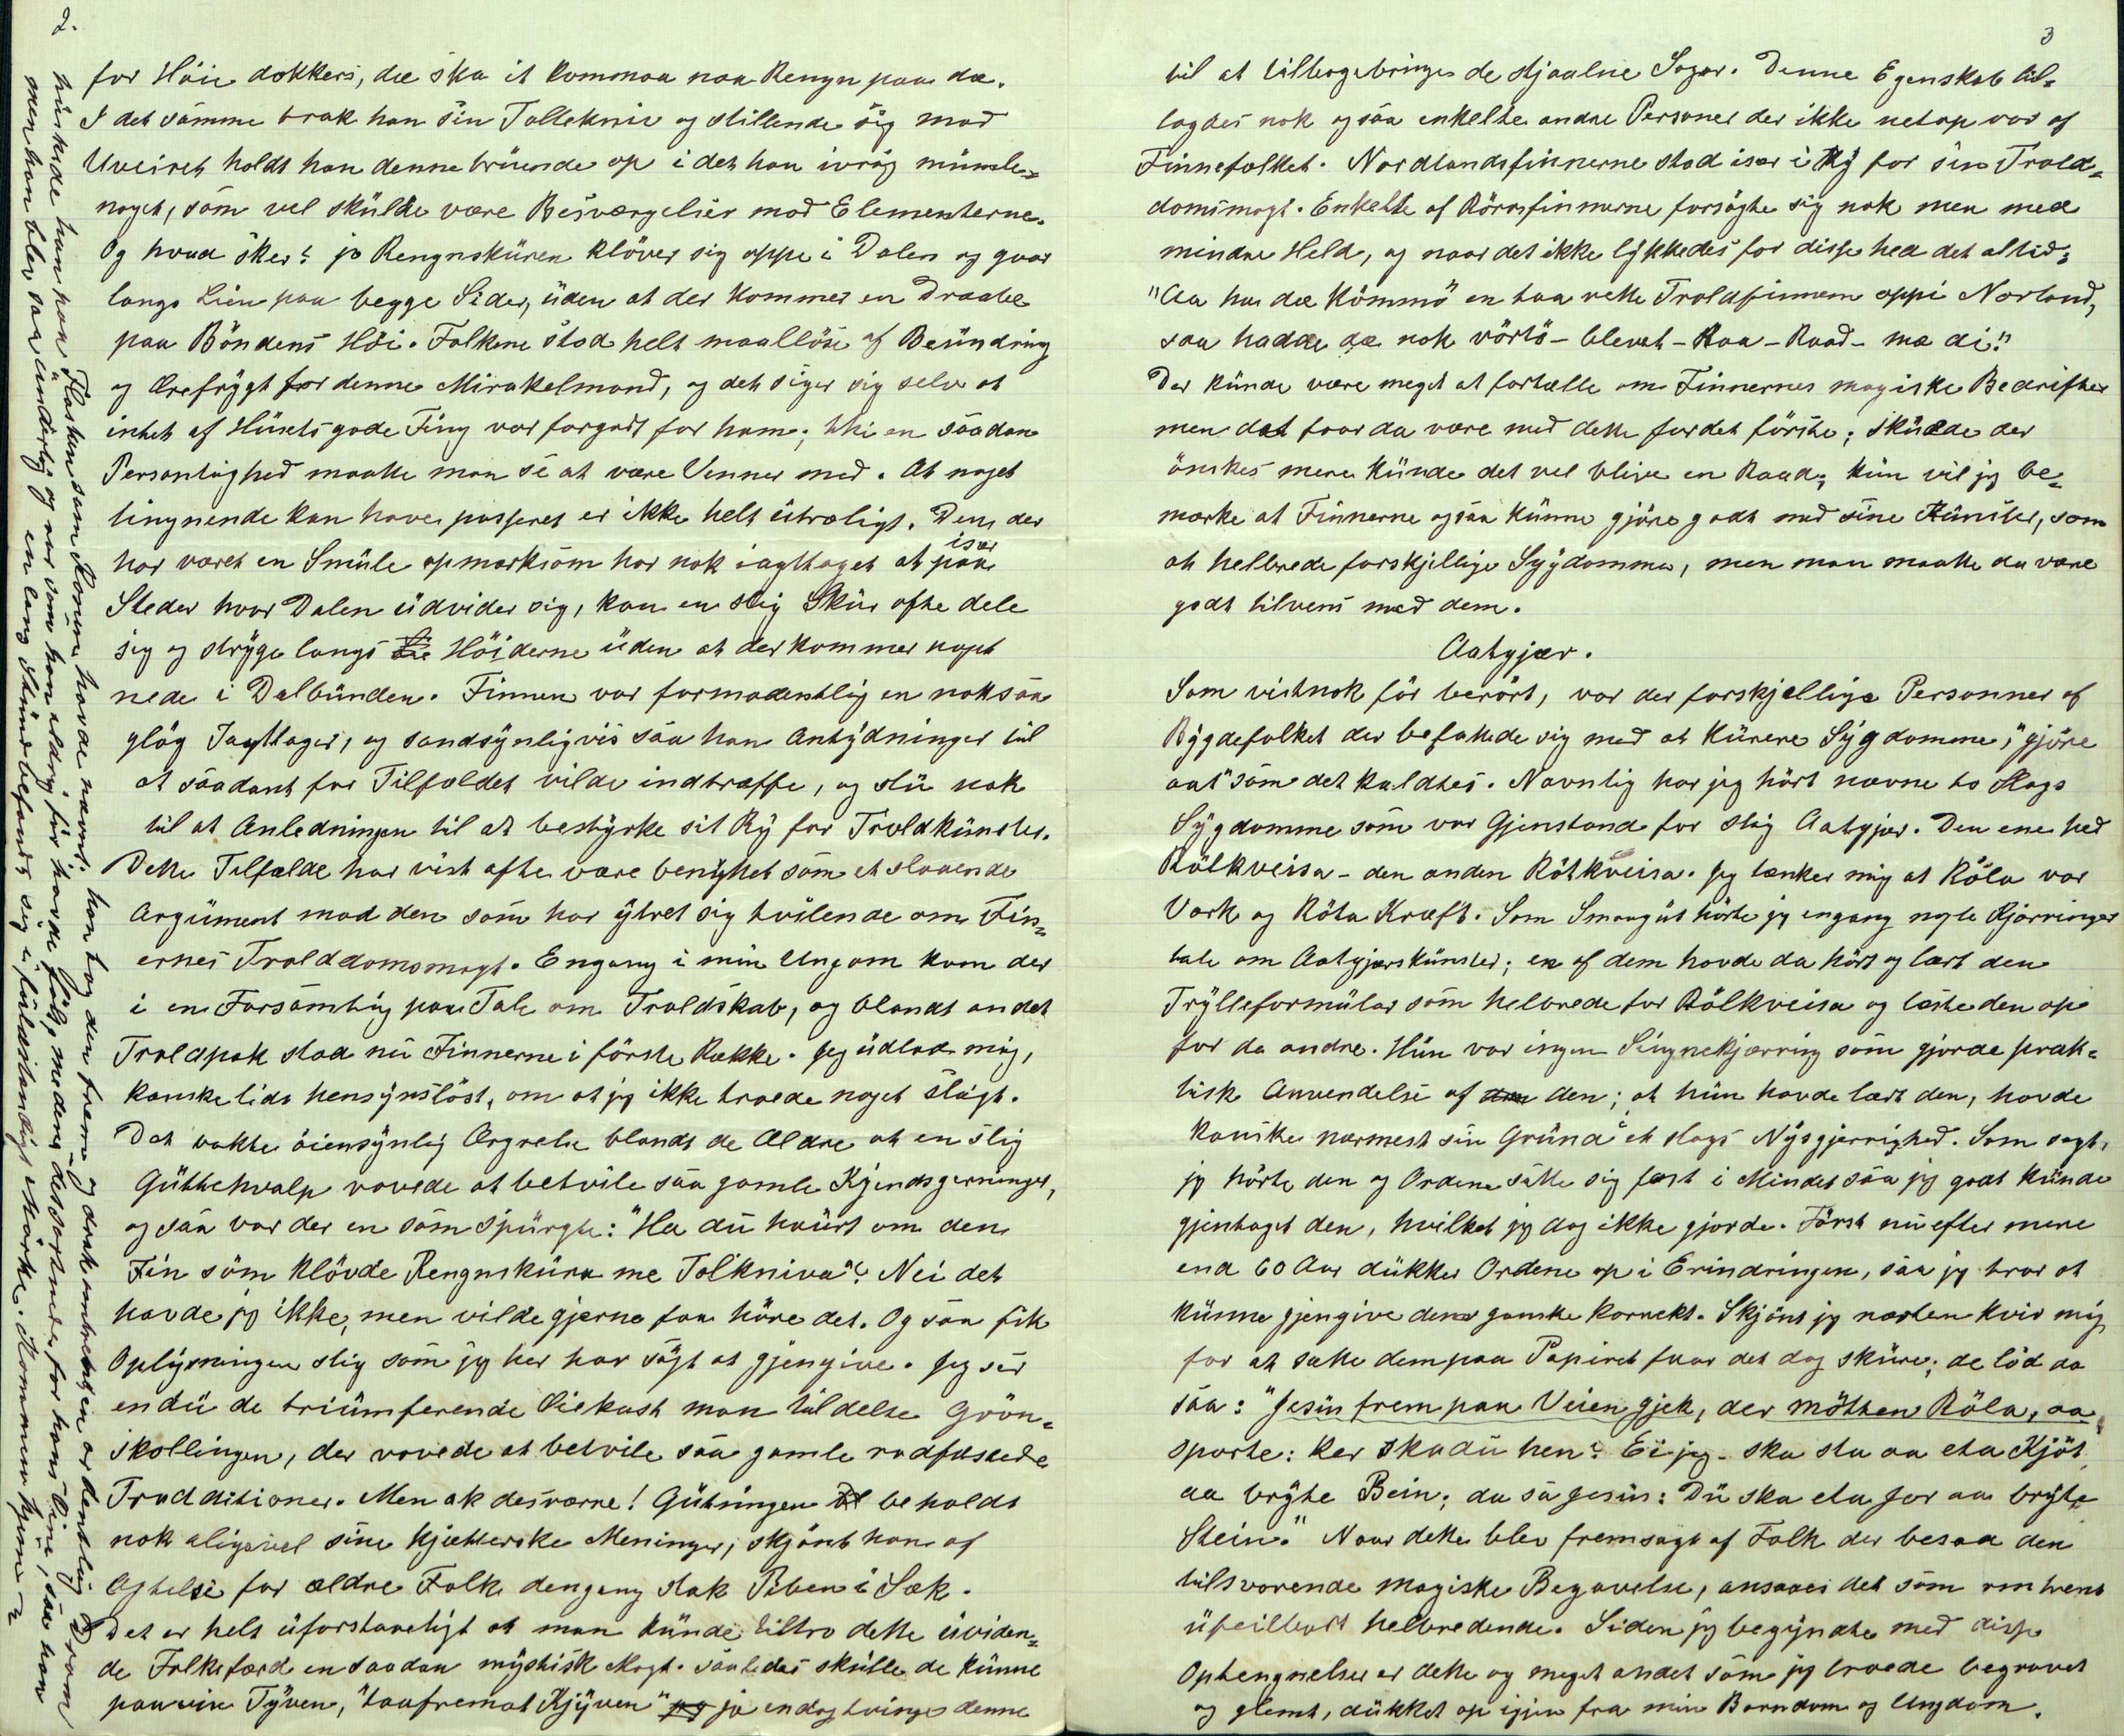 2.
for Höie dokkers, dæ ska it kommaa naa Rengn paa dæ.
I det samme trak han sin Tolleknie og stillende sig mod
Uveiret holdt han denne truende op i det han ivrig mumle-
noget, som vel skulde være Besværgelser mod Elementerne.
Og hvad sker? jo Rengnskuren klöver sig oppe i Dalen og gaar
langs Lien paa begge Sider, uden at der kommer en Draabe
paa Böndens Höi. Folkene stod helt maallöse af Beundring
og Ærefrygt for denne Mirakelmand, og det siger sig selv at
intet af Husets gode Ting var forgodt for ham; thi en saadan
Personlighed maatte man se at være Venner med. At noget
lingnende kan have passeret er ikke helt utroligt. Den, der
har været en Smule opmærksom har nok iagttaget at især paa
Steder hvor Dalen udvider sig, kan en slig Skur ofte dele
sig og stryge langs Höiderne uden at der kommer noget
nede i Dalbunden. Finnen var formodentlig en noksaa
glög Iagttager, og sandsynligvis saa han Antydninger til
at saadant for Tilfældet vilde indtræffe, og slu nok
til at Anledningen til at bestyrke sit Ry for Troldkunster.
Dette Tilfælde har vist ofte være benyttet som et slaaende
Argument mod den som har ytret sig tvilende om Fin-
ernes Trolddomsmagt. Engang i min Ungdom kom der
i en Forsamling paa Tale om Troldskab, og blandt andet
Troldpak stod nu Finnerne i förste Række. Jeg udlod mig,
kanske lidt hensynslöst, om at jeg ikke troede noget sligt.
Det vakte öiensynlig Ærgrelse blandt de Ældre at en slig
Guttehvalp vovede at betvile saa gamle Kjendsgerninger,
og saa var der en som spurgte: "Ha du haurt om den
Fin som klövde Rengnskura me Tolkniva"? Nei det
havde jeg ikke, men vilde gjerne faa höre det. Og saa fik
Oplysningen slig som jeg her har sögt at gjengive. Jeg ser
endu de triumferende Öiekast man tildelte Grön-
skollingen, der vovede at betvile saa gamle rodfæstede
Tradditioner. Men ak desværre! Gutungen beholdt
nok aligevel sine kjætterske Meninger, skjönt han af
Agtelse for ældre Folk dengang stak Piben i Sæk.
Det er helt uforstaaeligt at man kunde tiltro dette uviden-
de Folkefærd en saadan mystisk Magt. saaledes skulle de kunne
paavise Tyven, "taafremat Kjyven" ja endog tvinge denne
huskede han paa Flasken som Konen havde nævnt; han tog den frem og drak omtrent en ordentlig Dram
men han blev saa underlig og var som han aldrig för havde fölt, medens det sortnede for hans Öine, saa han
3
til at tilbagebringe de stjaalne Sager. Denne Egenskab til-
lagdes nok ogsaa enkelte andre Personer der ikke netop var af
Finnefolket. Nordlandsfinnerne stod især i Ry for sin Trold-
domsmagt. Enkelte af Rörosfinnerne forsögte sig nok men med
mindre Held, og naar det ikke lykkedes for disse hed det altid:
"Aa ha dæ kömmö en taa rette Troldfinnom oppi Norland,
saa hadde dæ nok vörtö - blevet - Raa - Raad - mæ di."
Der kunde være meget at fortælle om Finnernes magiske Bedrifter
men det faar da være med dette for det förste; skulde der
önskes mere kunde det vel blive en Raad; kun vil jeg be-
mærke at Finnerne ogsaa kunne gjöre godt med sine Kunster, som
at helbrede forskjellige Sygdomme, men man maatte da være
godt tilvens med dem.
Aatgjær.
Som vistnok för berört, var der forskjellige Personner af
Bygdefolket der befattede sig med at kurere Sygdomme, "gjöre
aat" som det kaldtes. Navnlig har jeg hört nævne to Slags
Sygdomme som var Gjenstand for slig Aatgjær. Den ene hed
Rölkveisa - den anden Rötkveisa. Jeg tænker mig at Röla var
Værk og Röta Kræft. Som Smaagut hörte jeg engang nogle Kjærringer
tale om Aatgjærskunster; en af dem havde da hört og lært den
Trylleformular som helbrede for Rölkveisa og læste den op
for de andre. Hun var ingen Singnekjærring som gjorde prak-
tisk Anvendelse af den; at hun havde lært den, havde
kanske nærmest sin Grund i et slags Nysgjerrighed. Som sagt,
jeg hörte den og Ordene satte sig fast i Mindet saa jeg godt kunde
gjentaget den, hvilket jeg dog ikke gjorde. Först nu efter mere
end 60 Aar dukker Ordene op i Erindringen, saa jeg tror at
kunne gjengive dem ganske korrekt. Skjönt jeg næsten kvir mig
for at sætte dem paa Papiret faar det dog skure; de löd da
saa: "Jesus frem paa Veien gjek, der mötten Röla, aa
sporte: Ker ska du hen? Ei jeg ska sta aa eta Kjöt
aa bryte Bein; da sa Jesus: Du ska eta Jor aa bryte
Stein." Naar dette blev fremsagt af Folk der besad den
tilsvarende magiske Begavelse, ansaaes det som omtrent
ufeilbart helbredende. Siden jeg begyndte med disse
Optengnelser er dette og meget andet som jeg troede begravet
og glemt, dukket op igjen fra min Barndom og Ungdom.